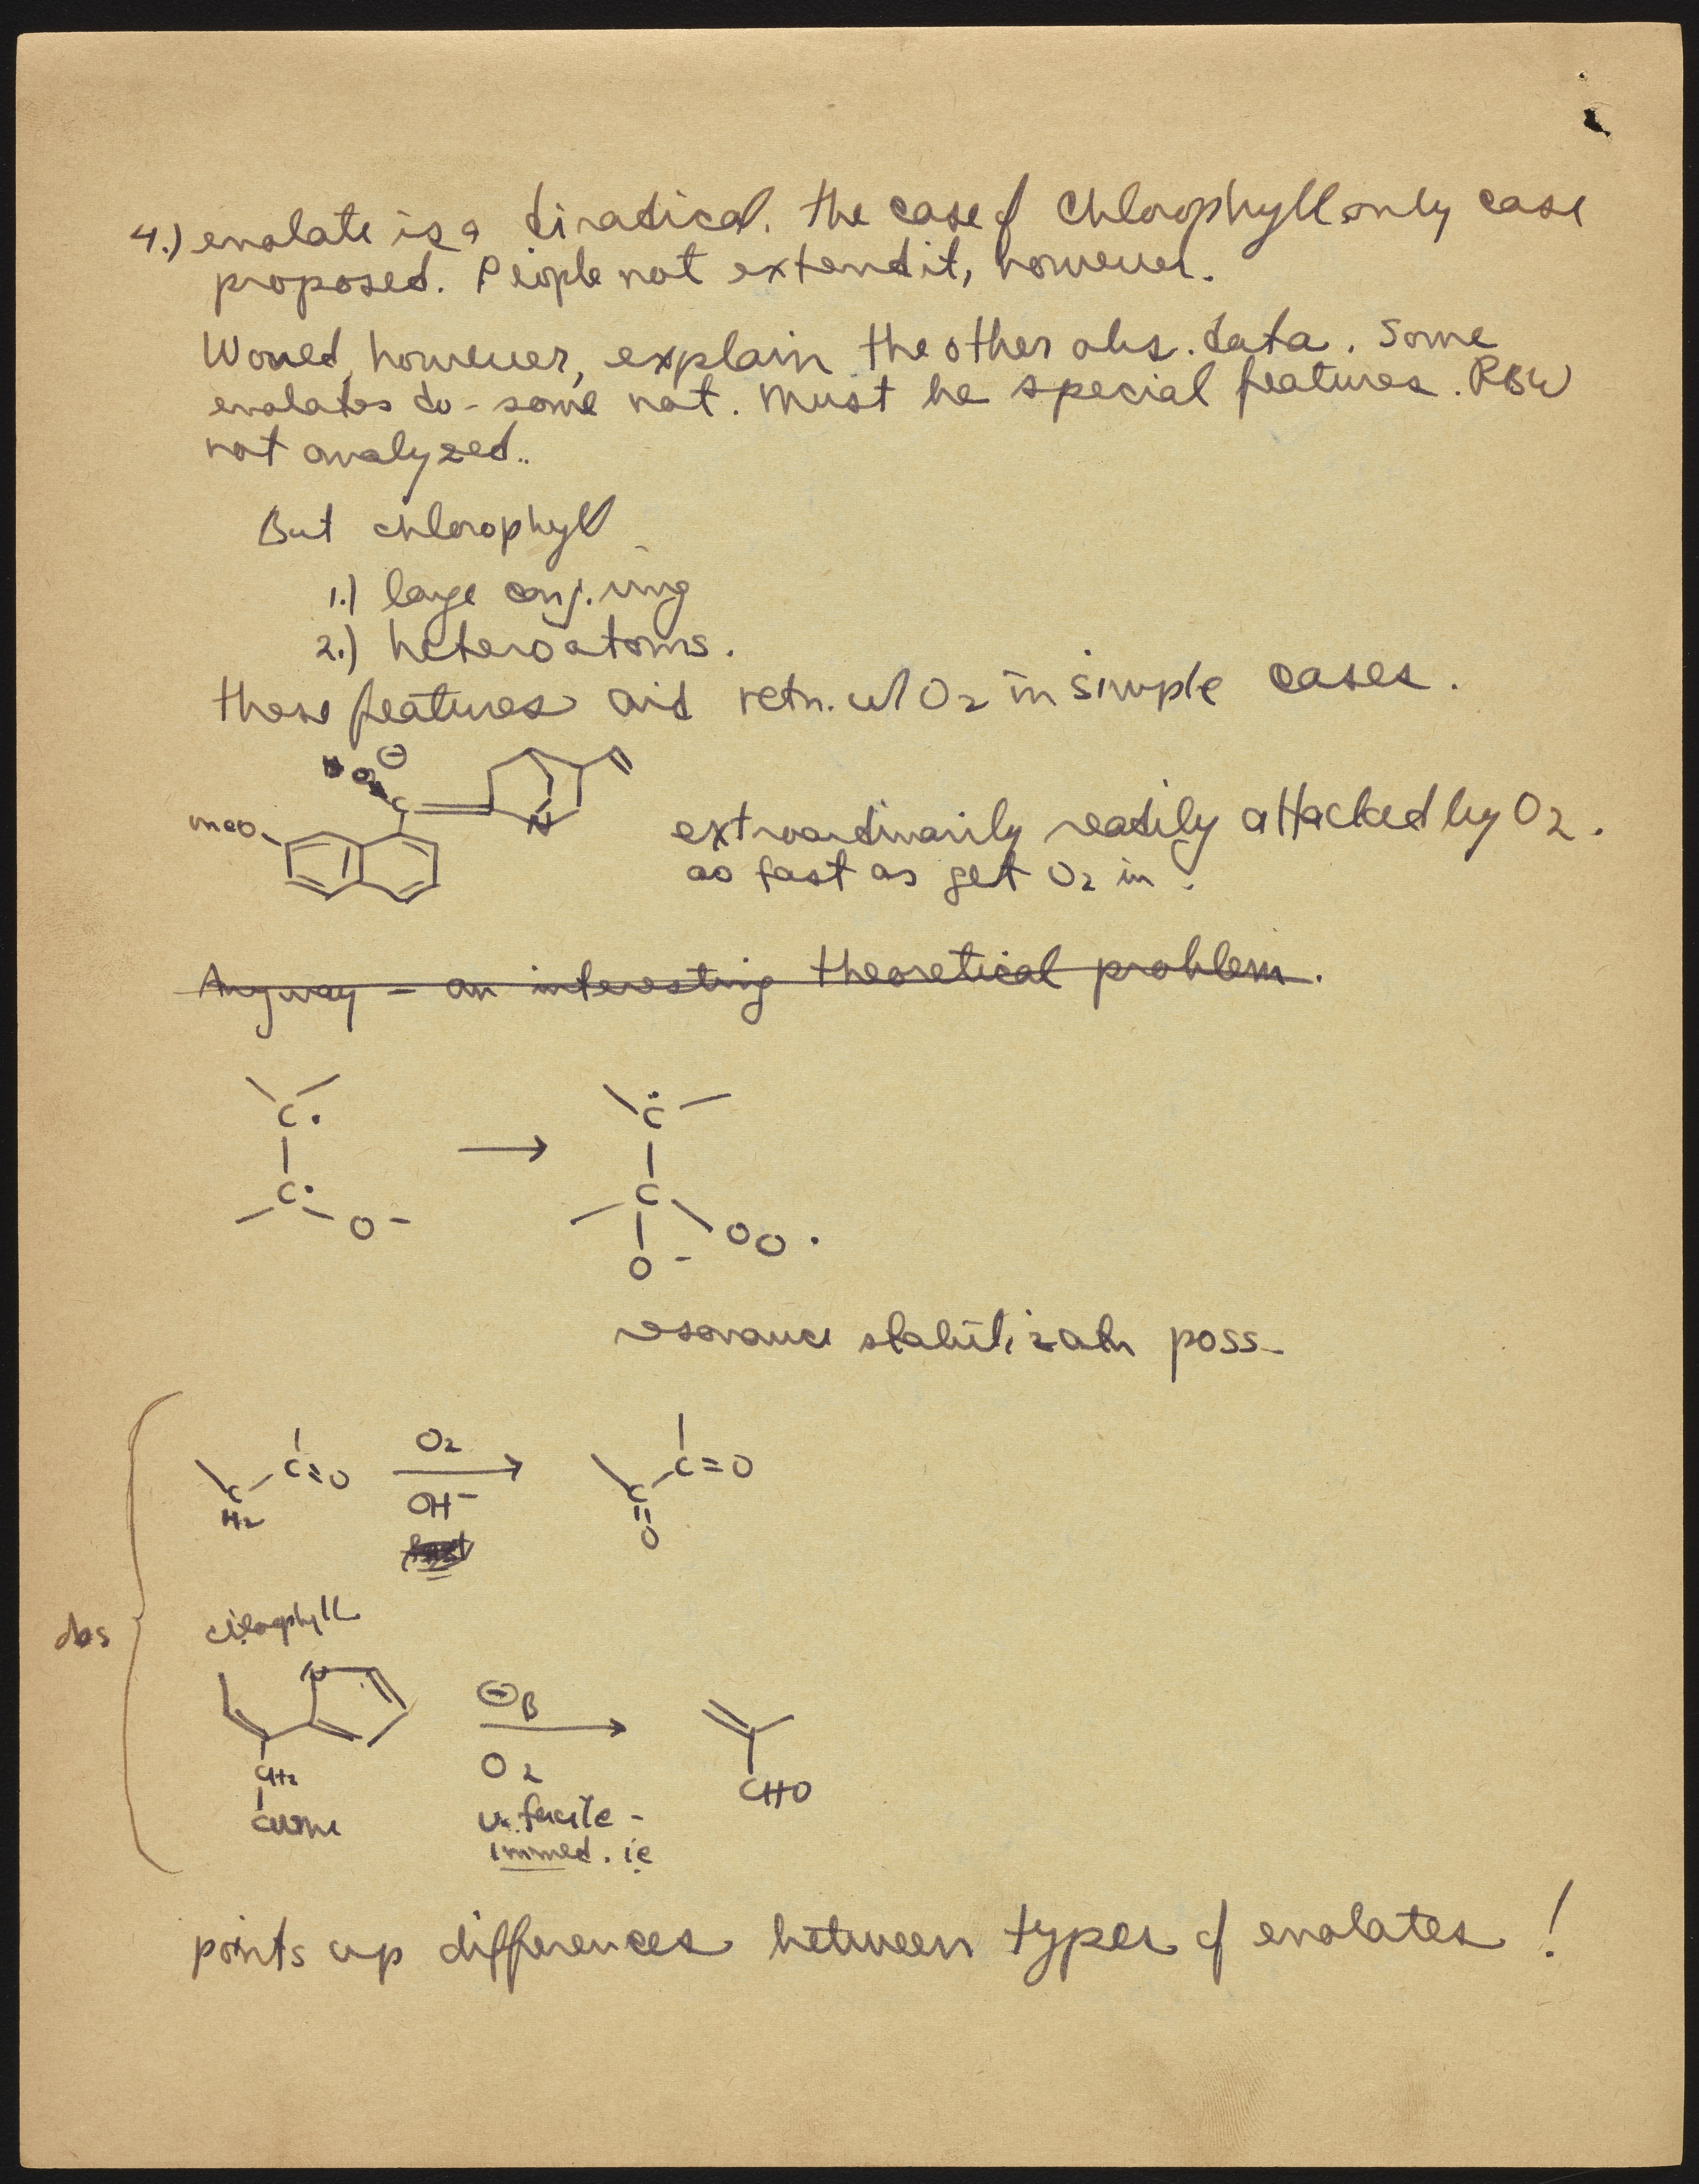 4.) enolate is a diradical. The case of chlorophyll only case
proposed. People not extend it, however.
Would, however, explain the other obs. data. Some
enolates do - some not. Must be special features. RBW
not analyzed..
But chlorophyll
1.) large conj. ring
2.) heteroatoms.
these features aid retn. w/ O2 in simple cases.
O ⊖
C
N
MeO
extraordinarily readily attacked by O2.
as fast as get O2 in.
Anyway - an interesting theoretical problem.
C·
C·
O-
→
C
C
O-
OO·
resonance stabilizatn poss-
C=O
C
H2
O2
OH-
→
C=O
C
=
O
obs
chlorophyll
N
CH2
COOMe
⊖B
O2
v. facile -
immed. ie
CHO
points up differences between types of enolates!